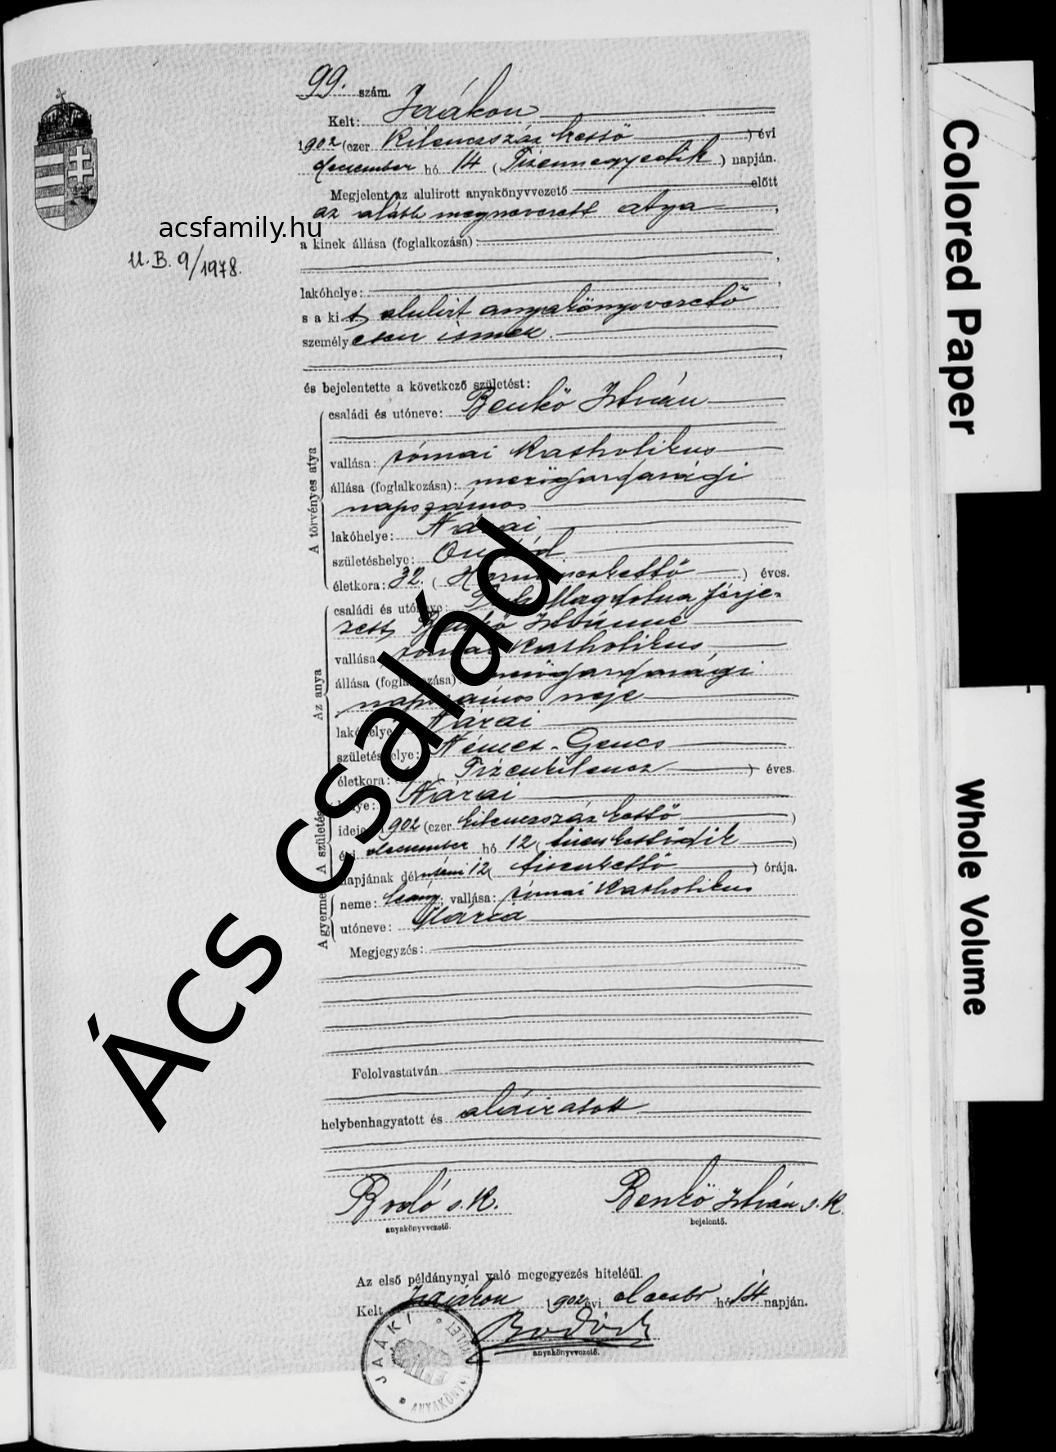 99. szám.
Kelt: Jaákon
1902 (ezer kilenczszáz kettő) évi
december hó 14 (Tizennegyedik) napján.
Megjelent az alulirott anyakönyvvezető előtt
az alább megnevezett atya
acsfamily.hu
a kinek állása (foglalkozása):
U.B. 9/1978.
lakóhelye:
s a kit alulirt anyakönyvvezető
személyesen ismer.
és bejelentette a következő születést:
A törvényes atya
családi és utóneve: Benkő István
vallása: római katholikus
állása (foglalkozása): mezőgazdasági
napszámos
lakóhelye: Nárai
születéshelye:
életkora: 32. (Harminczkettő) éves.
Az anya
családi és utóneve: Magdolna férje-
zett Benkő Istvánné
vallása: római katholikus
állása (foglalkozása): mezőgazdasági
napszámos neje
lakóhelye: Nárai
születéshelye: Német-Gencs
életkora: (Tizenkilencz) éves.
A gyermek A születés
helye: Nárai
ideje: 1902 (ezer kilenczszáz kettő)
évi december hó 12 (tizenkettődik)
napjának délutáni 12 (tizenkettő) órája.
neme: leány; vallása: római katholikus
utóneve: Mária
Megjegyzés:
Felolvastatván
helybenhagyatott és aláiratott
Bodó s.k. Benkő István s.k.
anyakönyvvezető. bejelentő.
Az első példánynyal való megegyezés hiteléül.
Kelt Jaákon 1902 évi decebr hó 14 napján.
anyakönyvvezető.
JAÁKI
Ács család
Colored Paper
Whole Volume